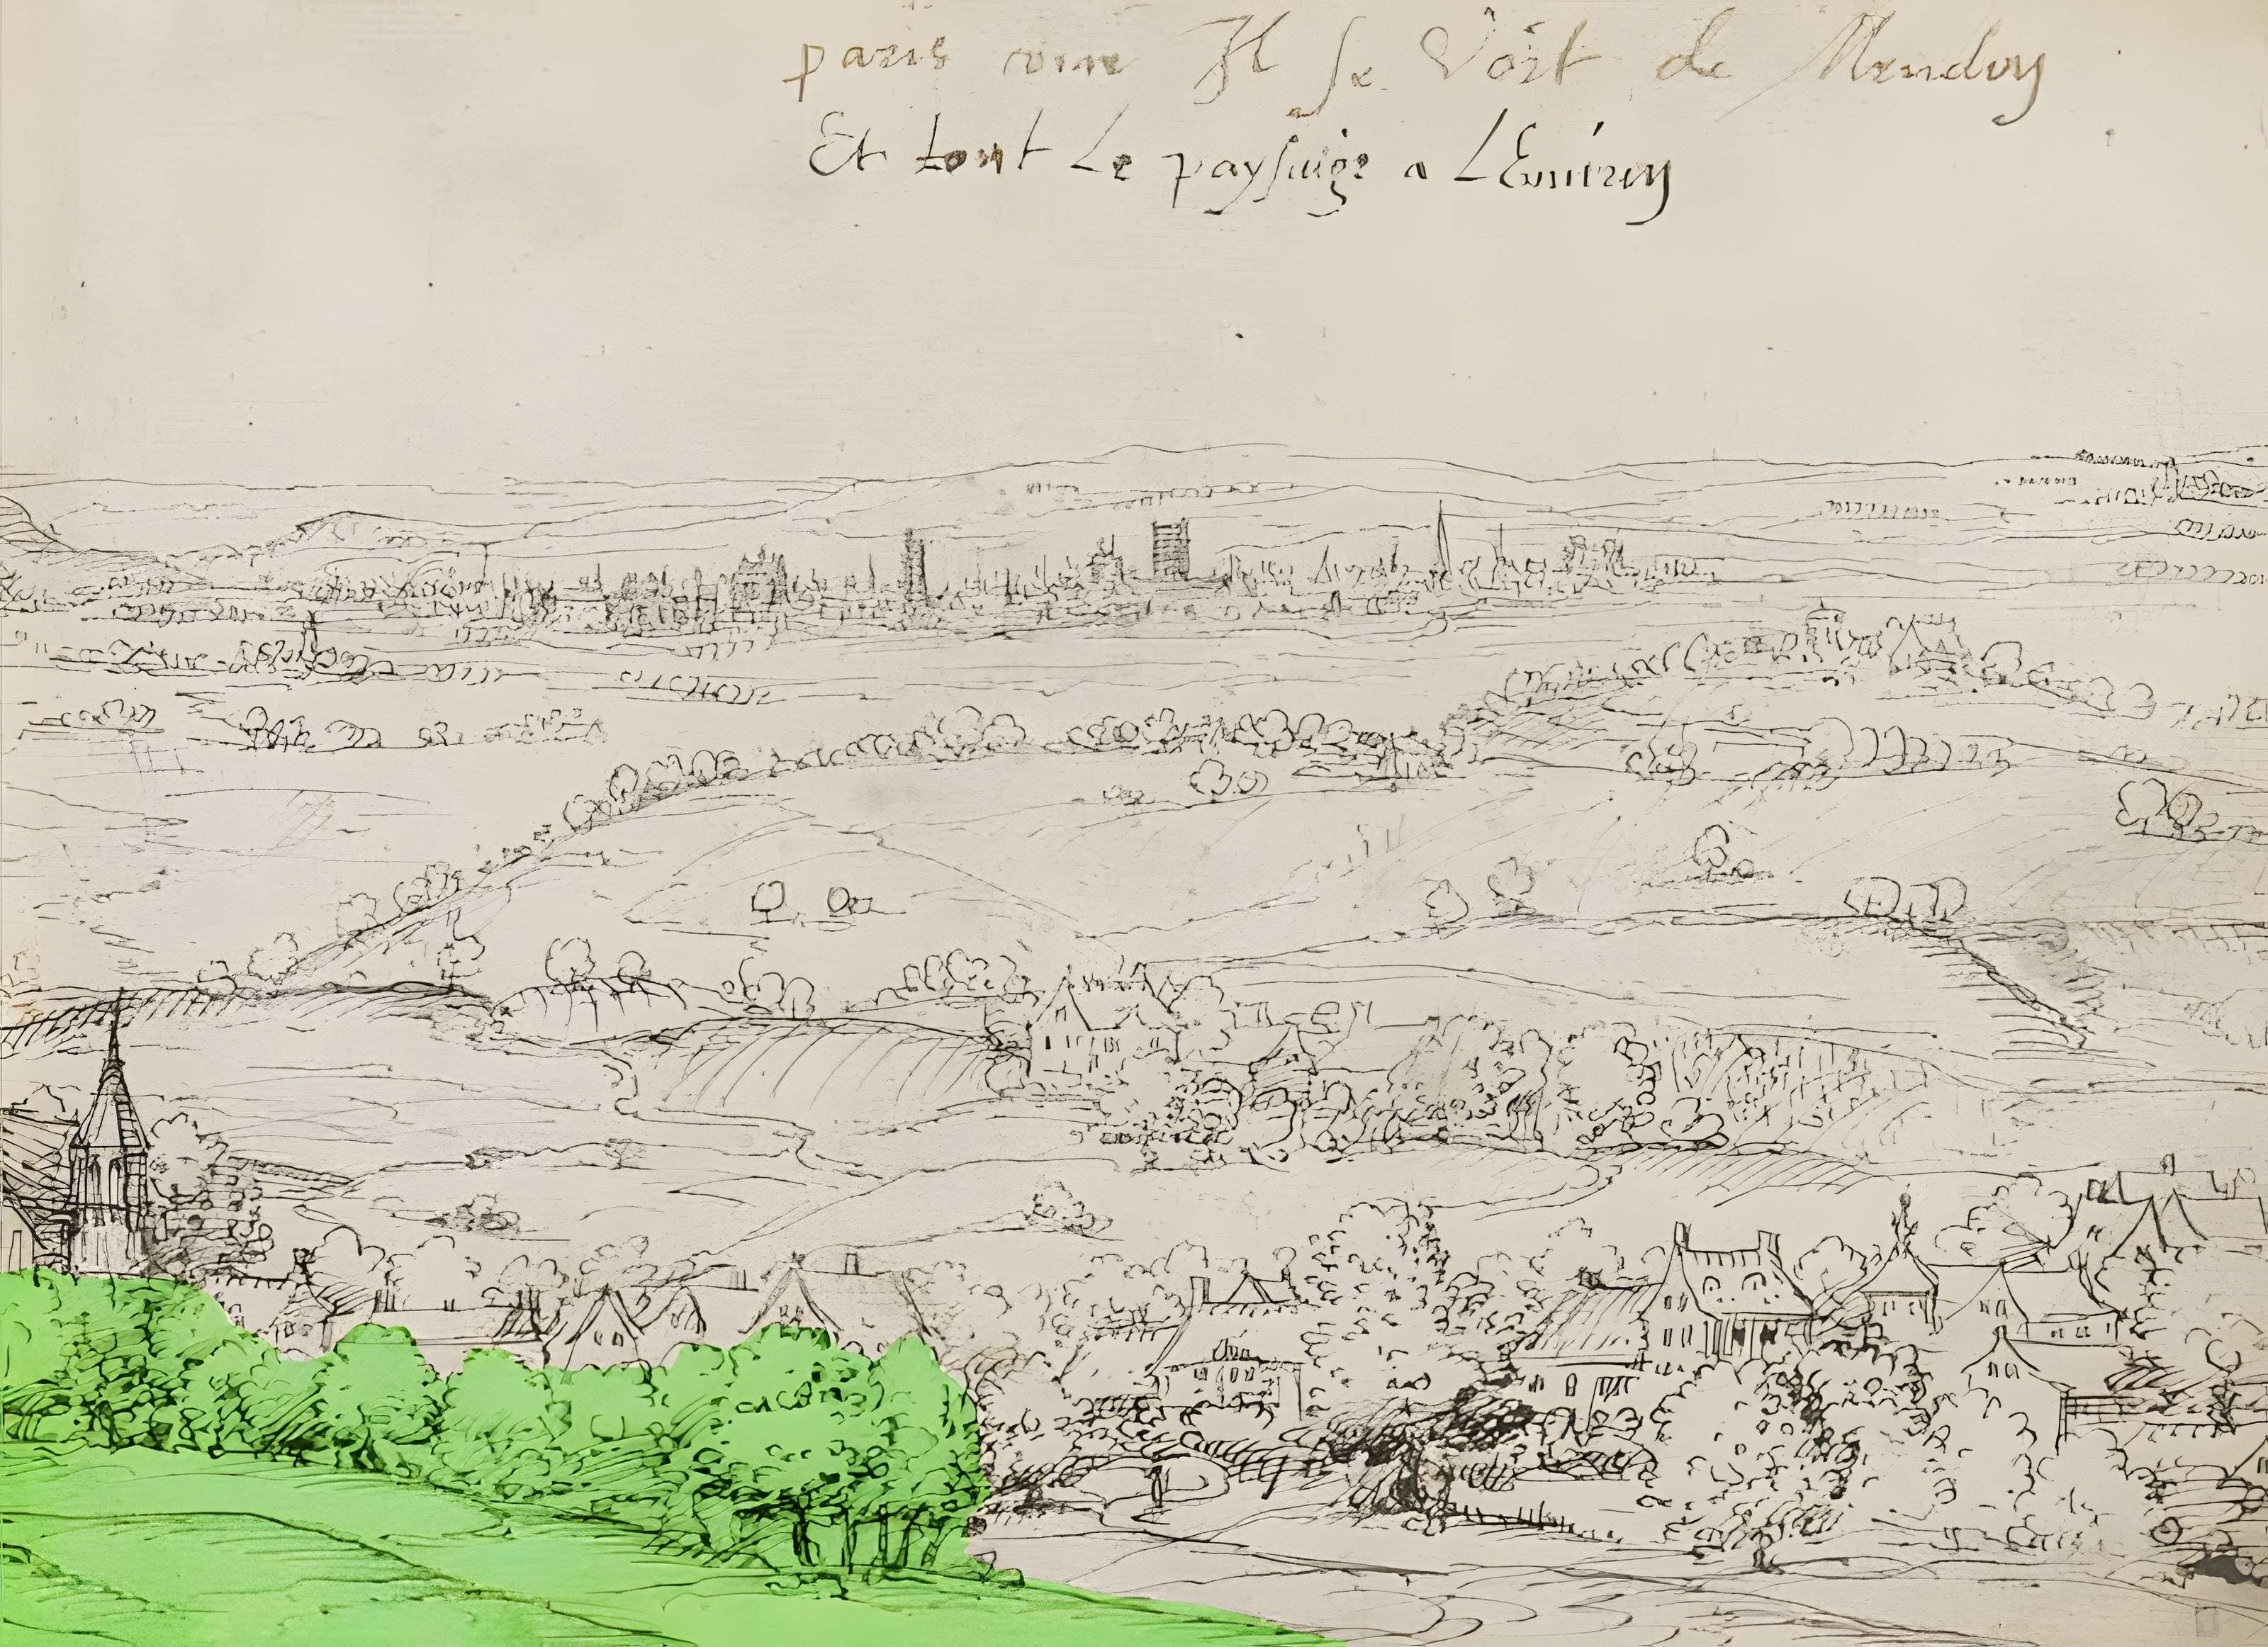 paris come Il se Voit de Meudon
Et tout Le paysaige a LEnuiron